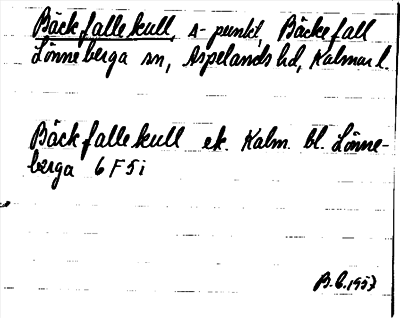 Bäckfallekull, s-punkt, Bäckefall
Lönneberga sn, Aspelands hd, Kalmar l.
Bäckfallekull ek. Kalm. bl. Lönne-
berga 6 F 5 i
B.G. 1957